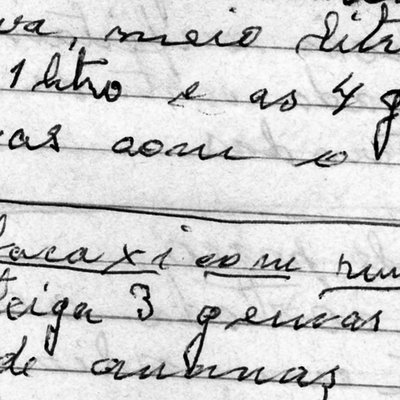 va, meio litr
1 litro e as 4 g
as com o
bacaxi com
teiga 3 gemas
de ananas